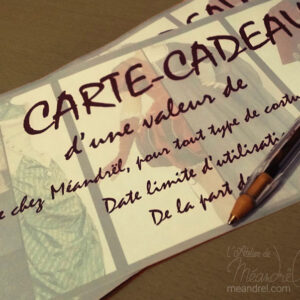 CARTE-CADEAU
d'une valeur de
chez Méandrël, pour tout type de costu
Date limite d'utilisatio
De la part de
L'Atelier de
Méandrël
meandrel.com